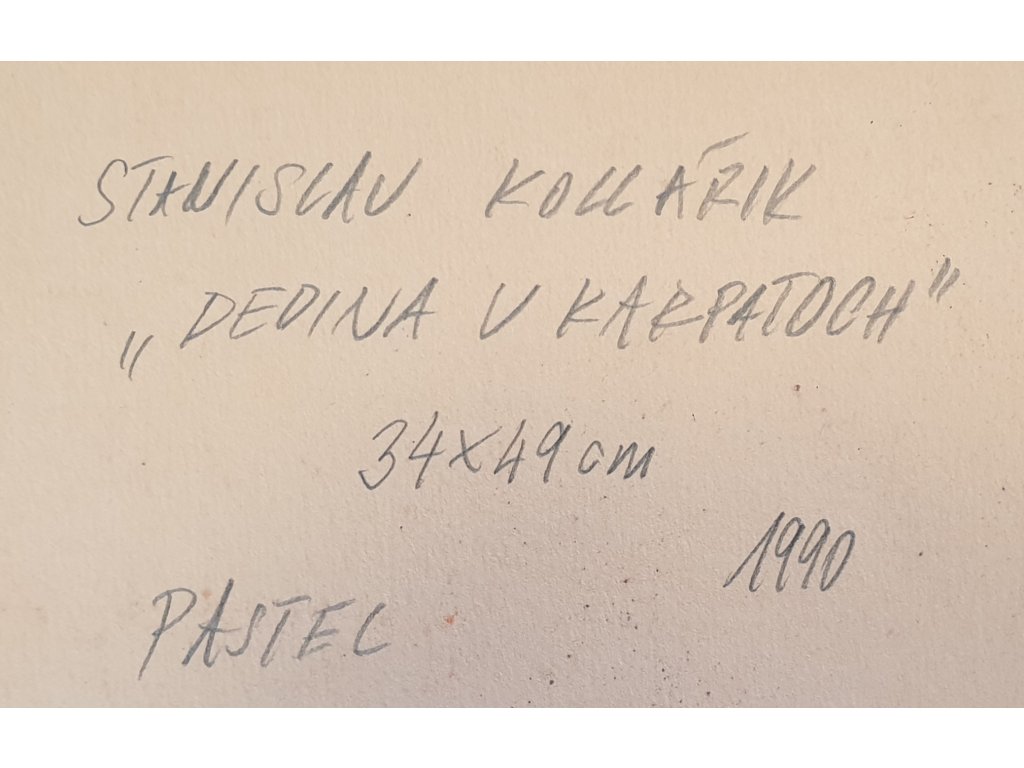 STANISLAV KOLLÁRIK
„DEDINA V KARPATOCH"
34x49 cm
1990
PASTEL